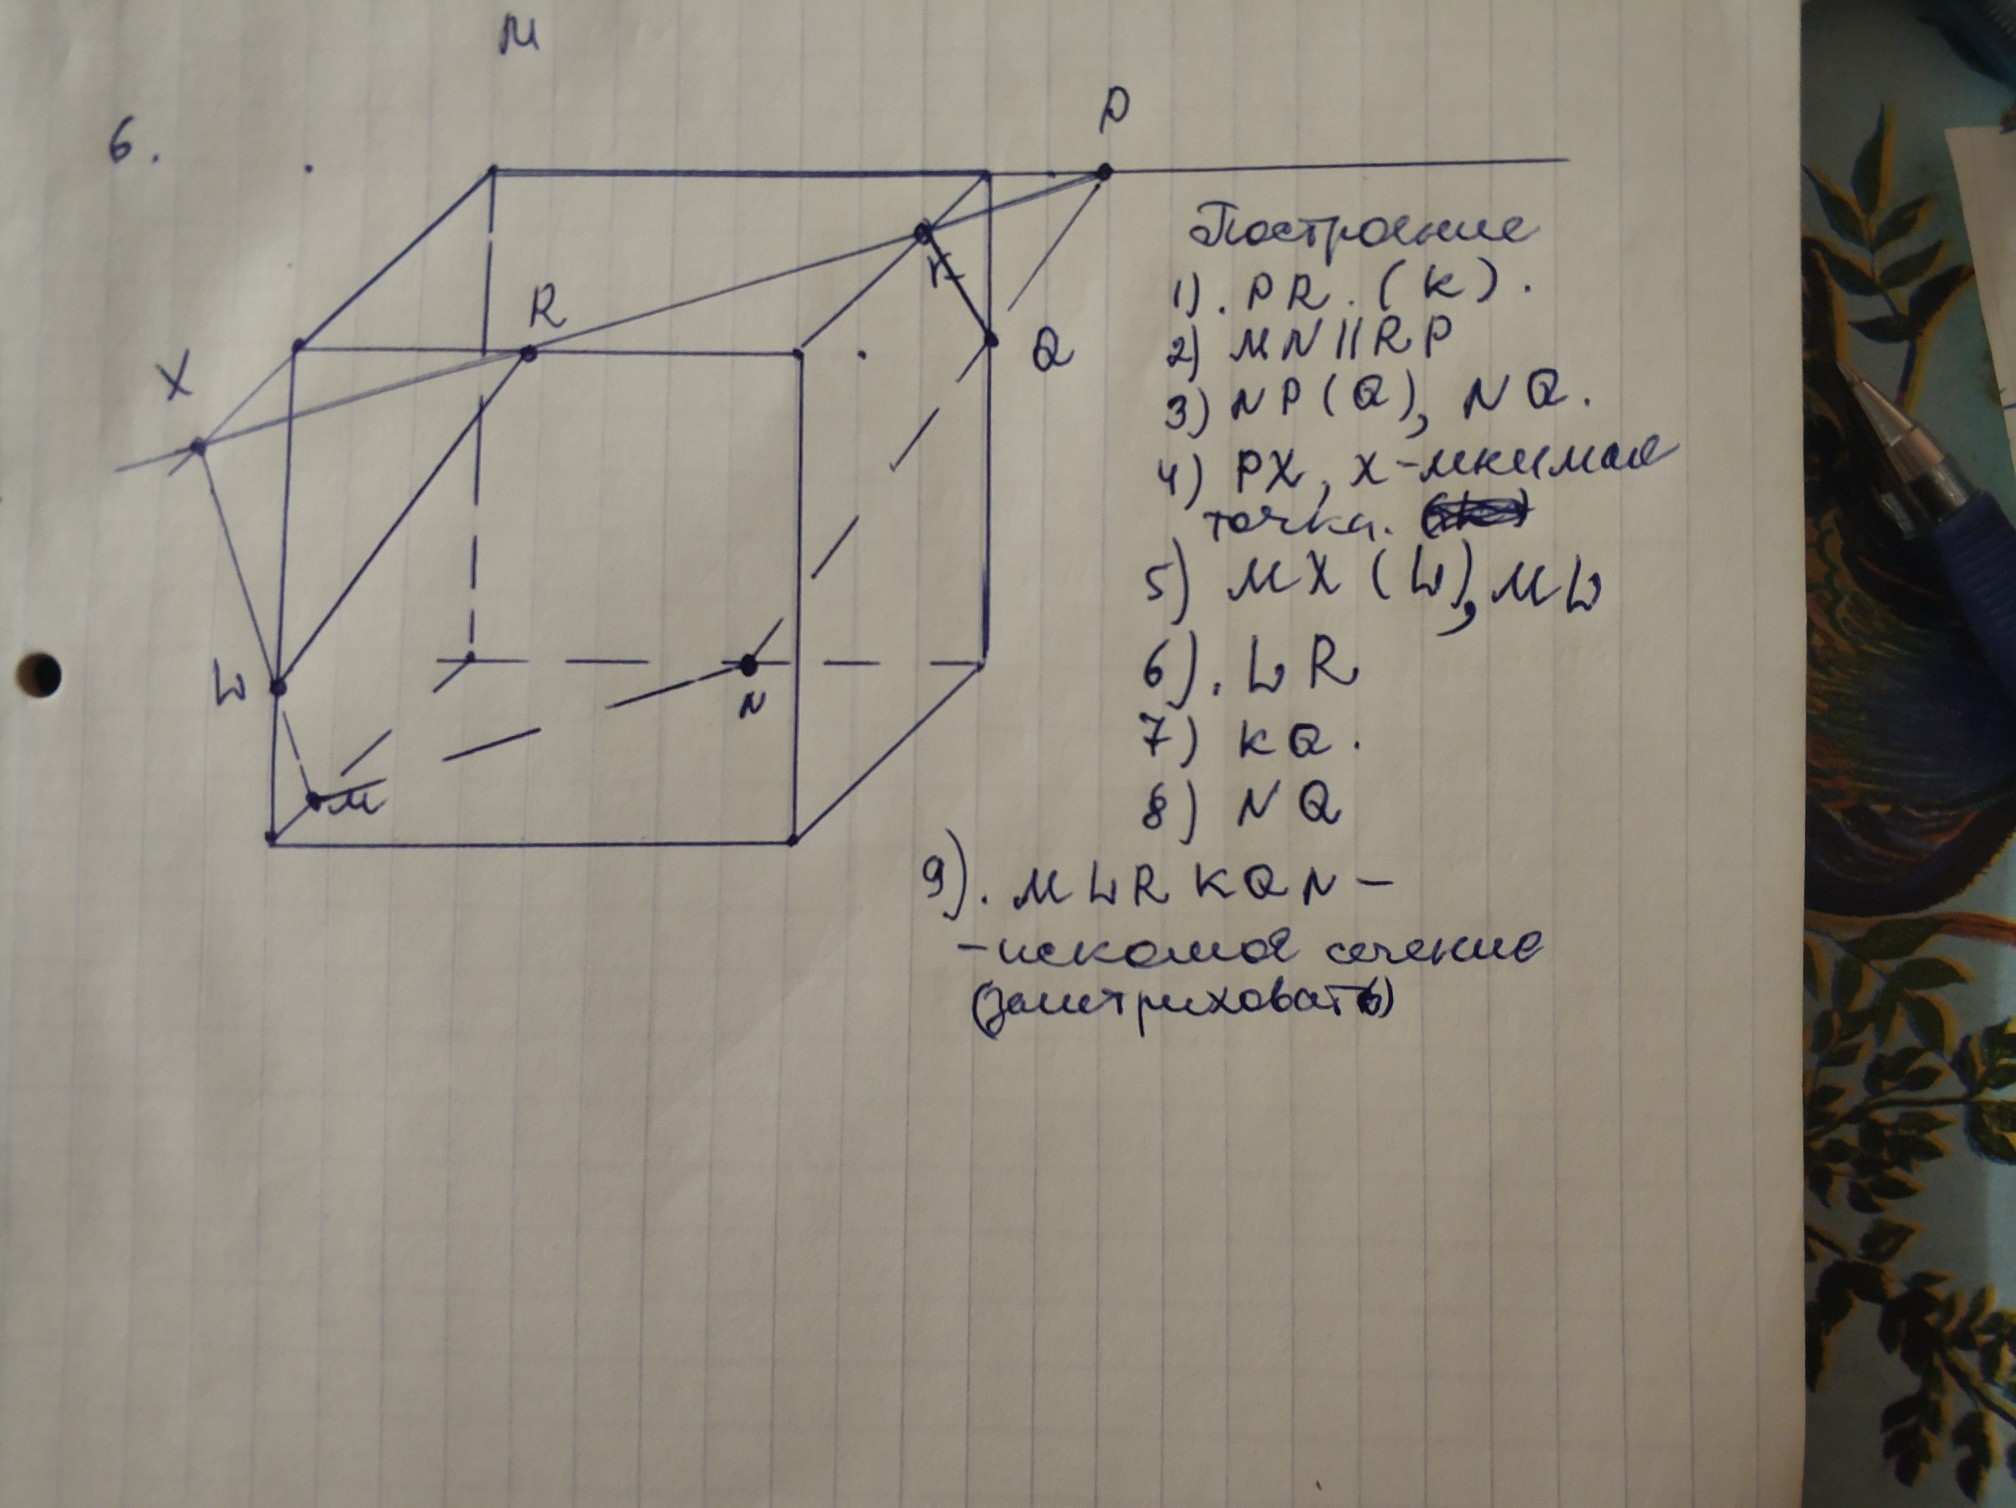 м
6.
P
Построение
1). PR. (K).
2) MN || RP
3) NP (Q), NQ.
4) PX, X - мнимая
точка.
5) MX (W), MW
6). WR
7) KQ.
8) NQ
9). MWRKQN -
- искомое сечение
(заштриховать)
R
K
Q
X
W
N
м